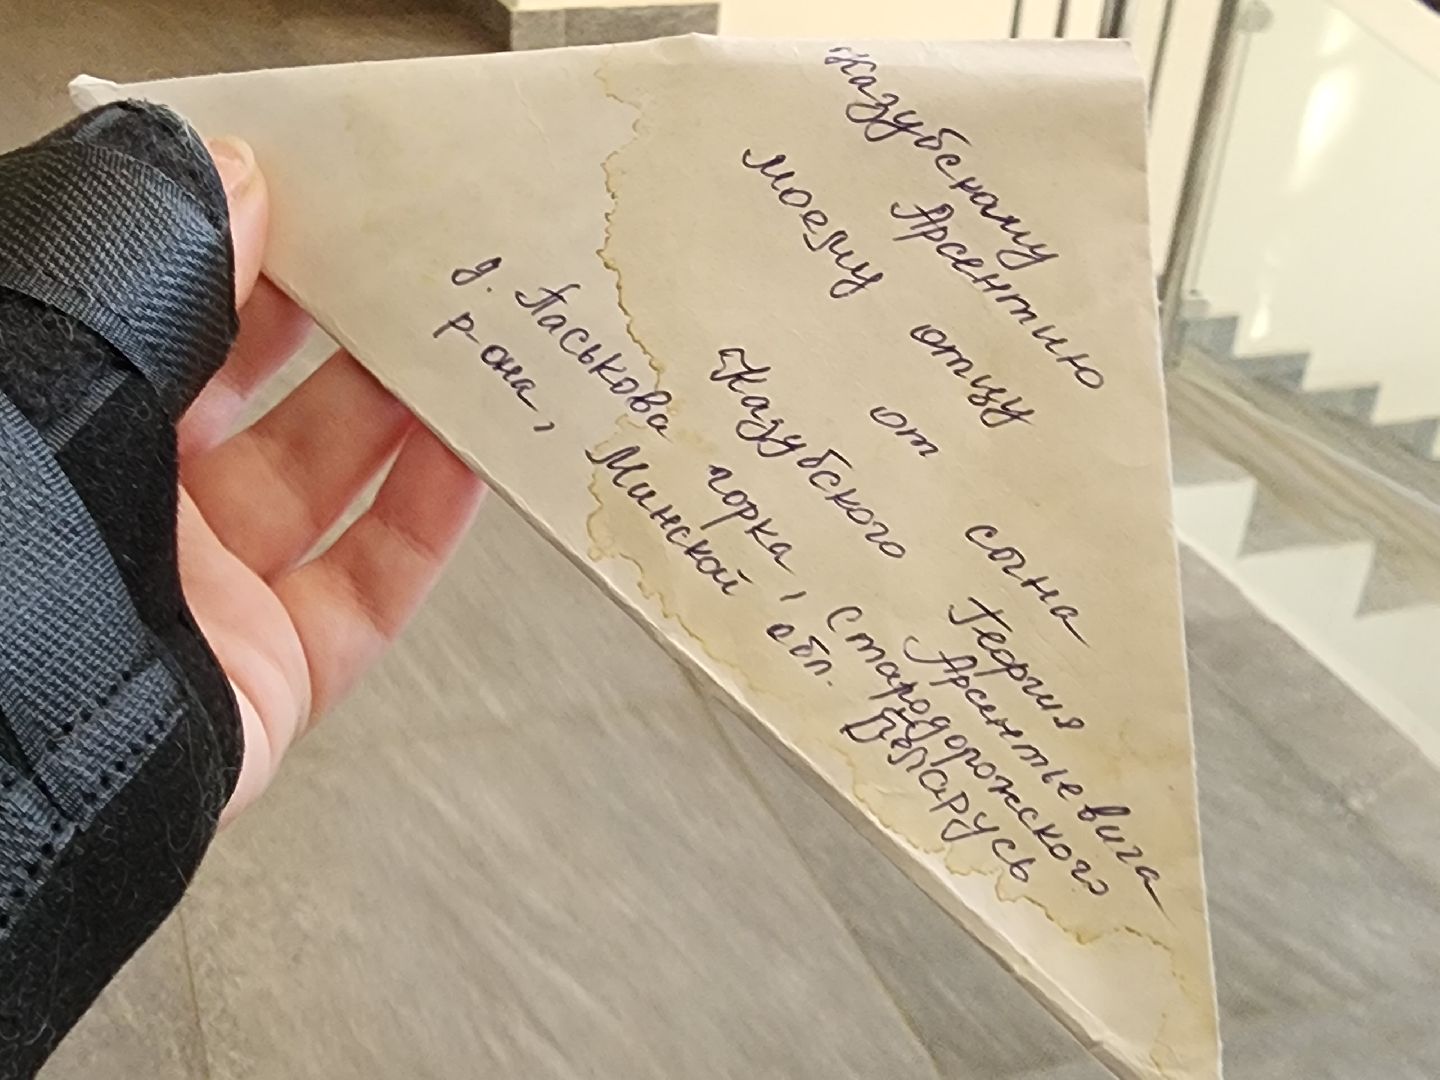 Казубскому
Арсентию
моему отцу
от сына
Казубского Георгия
Арсентьевича
д. Паськова горка, Стародорожского
р-она, Минской обл. Беларусь